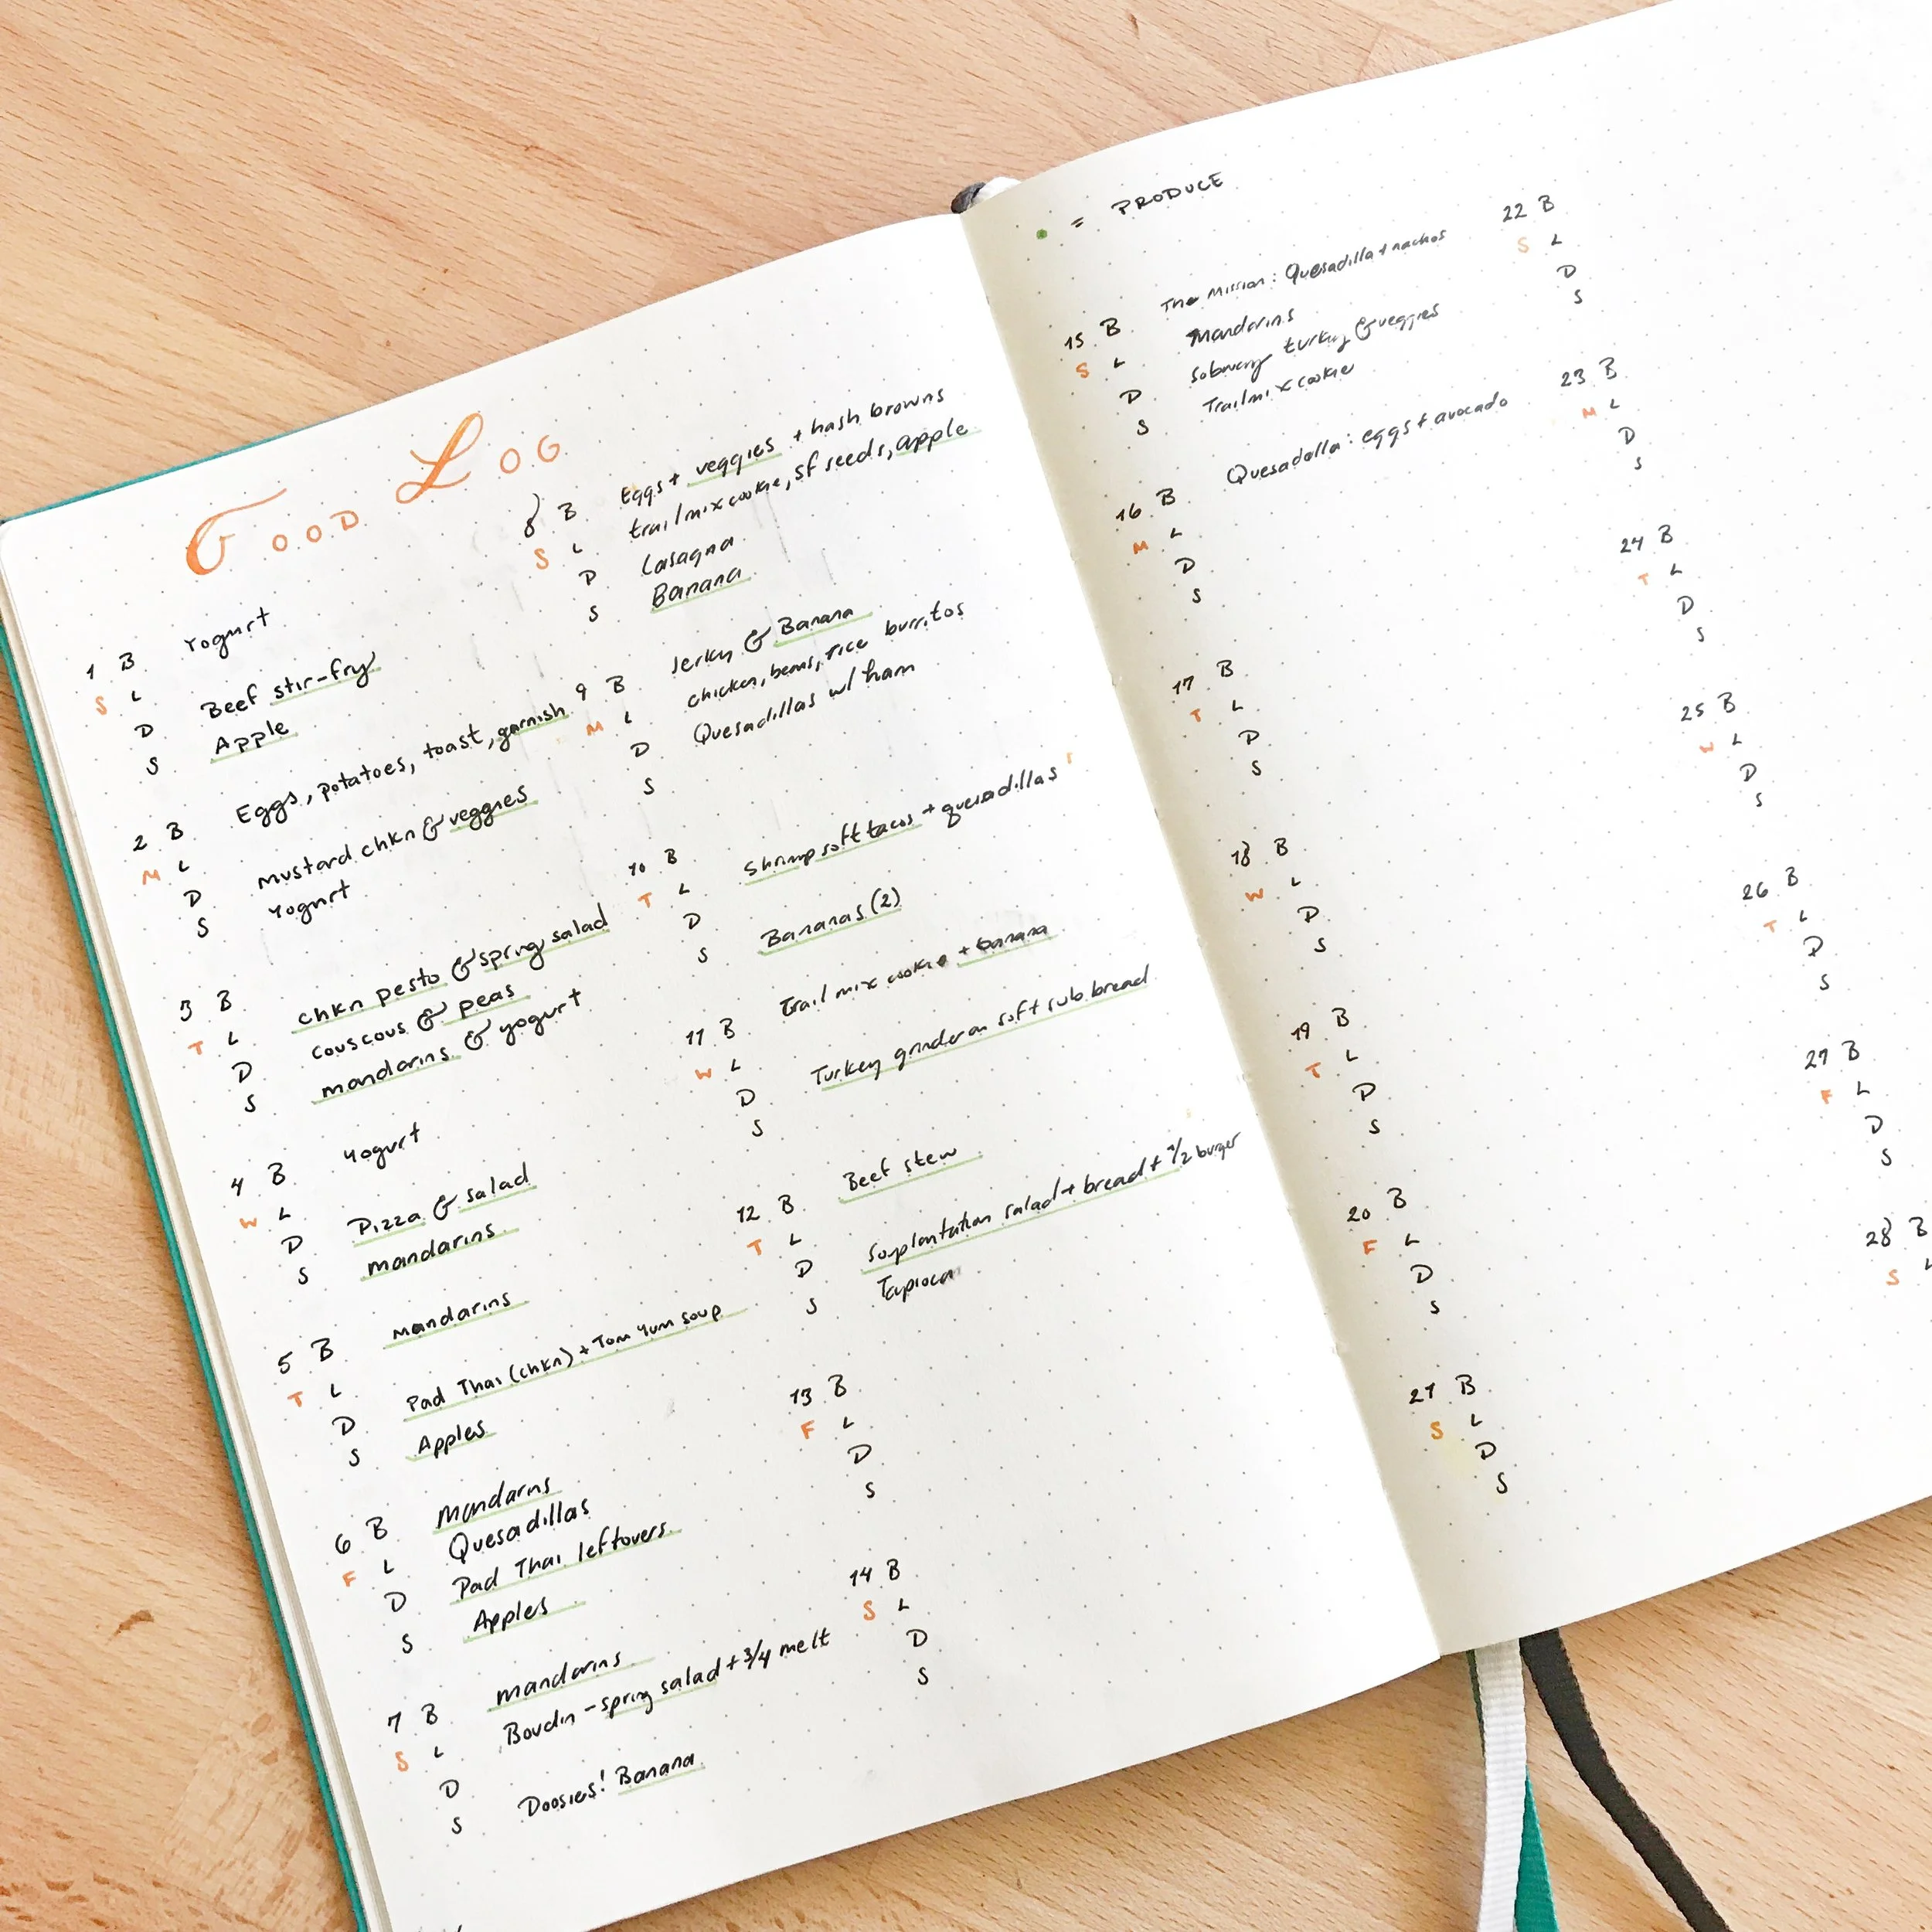 FOOD LOG
1 B Yogurt
S L
D Beef stir-fry
S Apple
2 B Eggs, potatoes, toast, garnish
M L
D mustard chkn & veggies
S Yogurt
3 B
T L chkn pesto & spring salad
D couscous & peas
S mandarins & yogurt
4 B Yogurt
W L
D Pizza & salad
S mandarins
5 B mandarins
T L
D Pad Thai (chkn) + Tom Yum soup
S Apples
6 B mandarns
F L Quesadillas
D Pad Thai leftovers
S Apples
7 B mandarins
S L Boudin - spring salad + 3/4 melt
D
S Doosies! Banana
8 B Eggs + veggies + hash browns
S L trailmix cookie, sf seeds, apple
D Lasagna
S Banana
9 B Jerky & Banana
M L chicken, beans, rice burritos
D Quesadillas w/ ham
S
10 B
T L Shrimp soft tacos + quesadillas
D
S Bananas (2)
11 B Trail mix cookie + banana
W L
D Turkey grinder on soft sub bread
S
12 B Beef stew
T L
D Souplantation salad + bread + 1/2 burger
S Tapioca
13 B
F L
D
S
14 B
S L
D
S
= PRODUCE
15 B The Mission: Quesadilla + nachos
S L Mandarins
D Subway turkey & veggies
S Trailmix cookie
16 B Quesadalla: eggs + avocado
M L
D
S
17 B
T L
D
S
18 B
W L
D
S
19 B
T L
D
S
20 B
F L
D
S
21 B
S L
D
S
22 B
S L
D
S
23 B
M L
D
S
24 B
T L
D
S
25 B
W L
D
S
26 B
T L
D
S
27 B
F L
D
S
28 B
S L